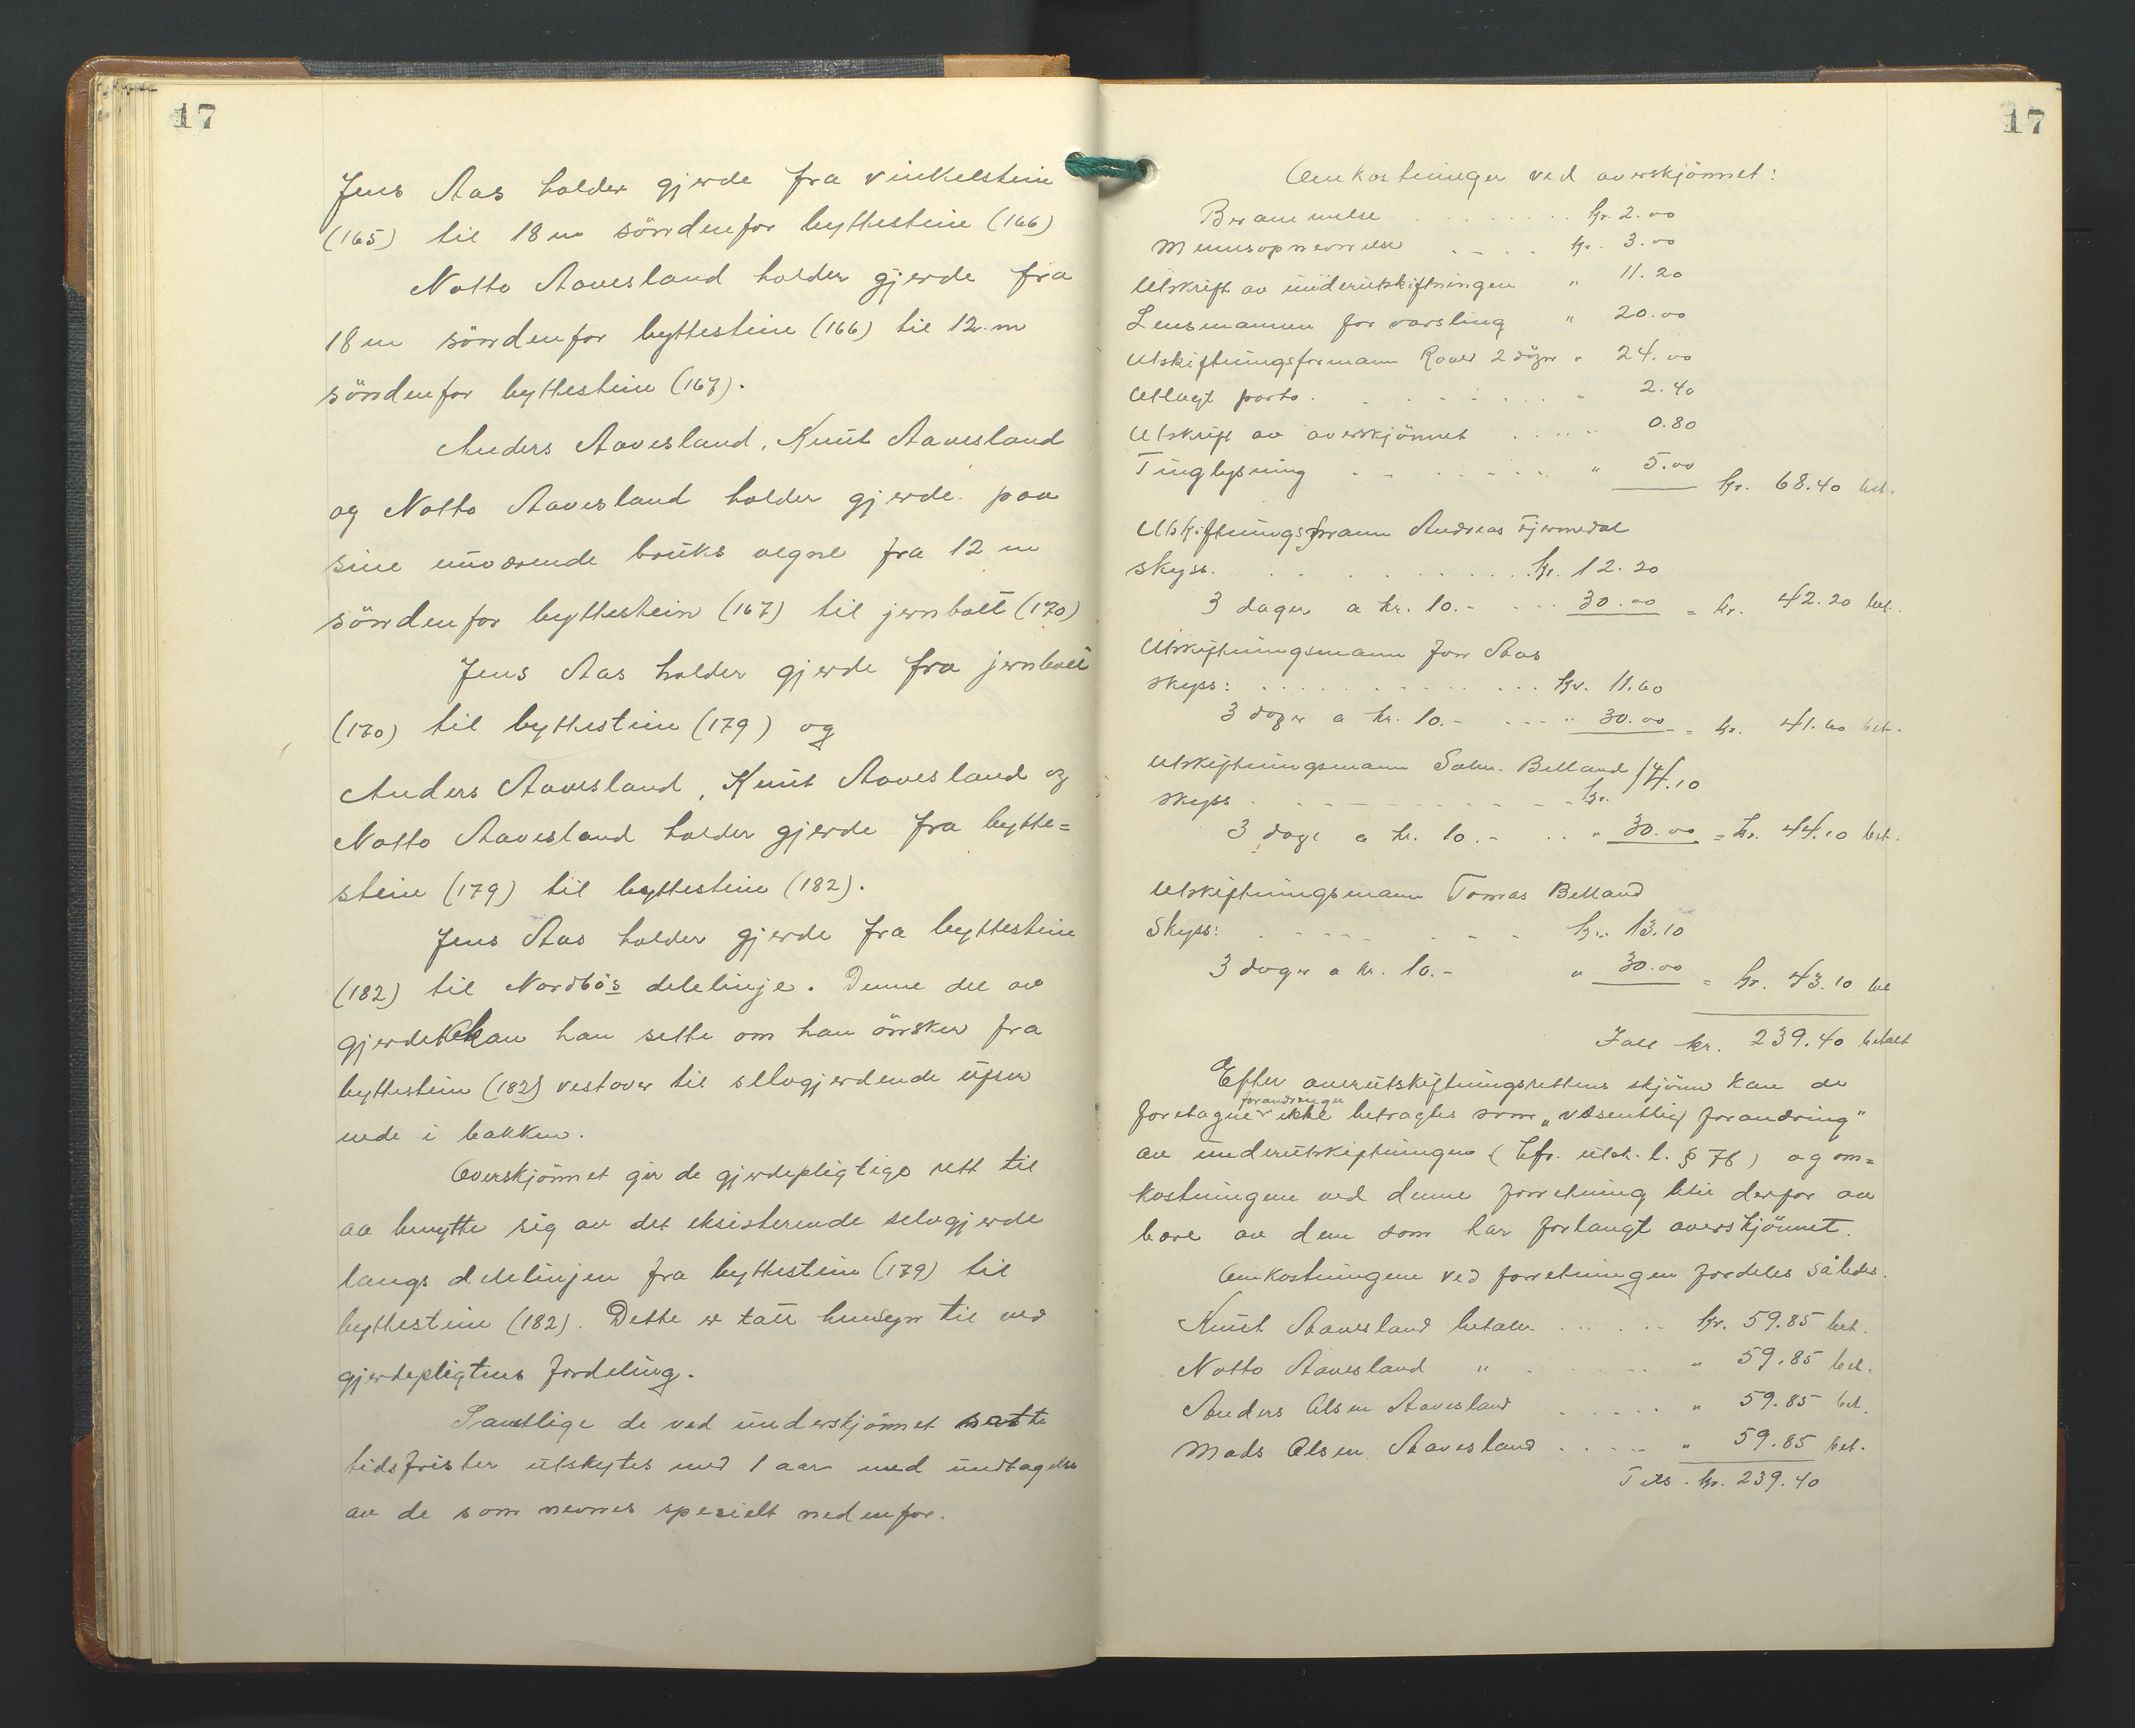 17
Jens Aas holder gjerde fra vinkelstein
(165) til 18 m sönndenfor byttestein (166)
Notto Aavesland holder gjerde fra
18 m sönndenfor byttestein (166) til 12 m
sönndenfor byttestein (167).
Anders Aavesland, Knut Aavesland
og Notto Aavesland holder gjerde paa
sine nuværende bruks vegne fra 12 m
sönndenfor byttestein (167) til jernbolt (170)
Jens Aas holder gjerde fra jernbolt
(170) til byttestein (179) og
Anders Aavesland, Knut Aavesland og
Notto Aavesland holder gjerde fra bytte=
stein (179) til byttestein (182).
Jens Aas holder gjerde fra byttestein
(182) til Nordbös delelinje. Denne del av
gjerdet kan han sette om han önsker fra
byttestein (182) vestover til selvgjerdende ufser
nede i bakken.
Overskjönnet gir de gjerdepligtige rett til
aa benytte sig av det eksisterende selvgjerde
langs delelinjen fra byttestein (179) til
byttestein (182). Dette er tatt hensyn til ved
gjerdepligtens fordeling.
Samtlige de ved underskjönnet satte
tidsfrister utskytes med 1 aar med undtagelse
av de som nevnes spesielt nedenfor.
17
Omkostninger ved overskjönnet:
Berammelse . . . . . . . . kr. 2.00
Mennsopnevnelse . . . . kr. 3.00
Utskrift av underutskiftningen " 11.20
Lensmannen for varsling " 20.00
Utskiftningsformann 2 dögn " 24.00
Utlagt porto . . . . . . . . " 2.40
Utskrift av overskjönnet . . . . . 0.80
Tinglysning . . . . . . . " 5.00 kr. 68.40 bet.
Utskiftningsmann Andreas Fjermedal
skyss. . . . . . . . . . . kr. 12.20
3 dager a kr. 10.- . . . 30.00 = kr. 42.20 bet.
Utskiftningsmann Jon Aas
skyss: . . . . . . . . . . . . . kr. 11.60
3 dager a kr. 10.- . . . . " 30.00 = kr. 41.60 bet.
Utskiftningsmann Salm. Belland
skyss . . . . . . . . . . . kr. 14.10
3 dage a kr. 10.- . . " 30.00 = kr. 44.10 bet.
Utskiftningsmann Tomas Belland
Skyss: . . . . . . . . kr. 13.10
3 dager a kr. 10.- " 30.00 = kr. 43.10 bet
I alt kr. 239.40 betalt
Efter overutskiftningsrettens skjönn kan de
foretagne forandringer ikke betragtes som „vesentlig forandring"
av underutskiftningen (Cfr. utsk. l. § 76) og om=
kostningene ved denne forretning blir derfor aa
bære av dem som har forlangt overskjönnet.
Omkostningene ved forretningen fordeles således.
Knut Aavesland betaler . . . . . kr. 59.85 bet.
Notto Aavesland " . . . . . " 59.85 bet.
Anders Olsen Aavesland . . . . . " 59.85 bet.
Mads Olsen Aavesland . . . . . " 59.85 bet.
Tils. kr. 239.40